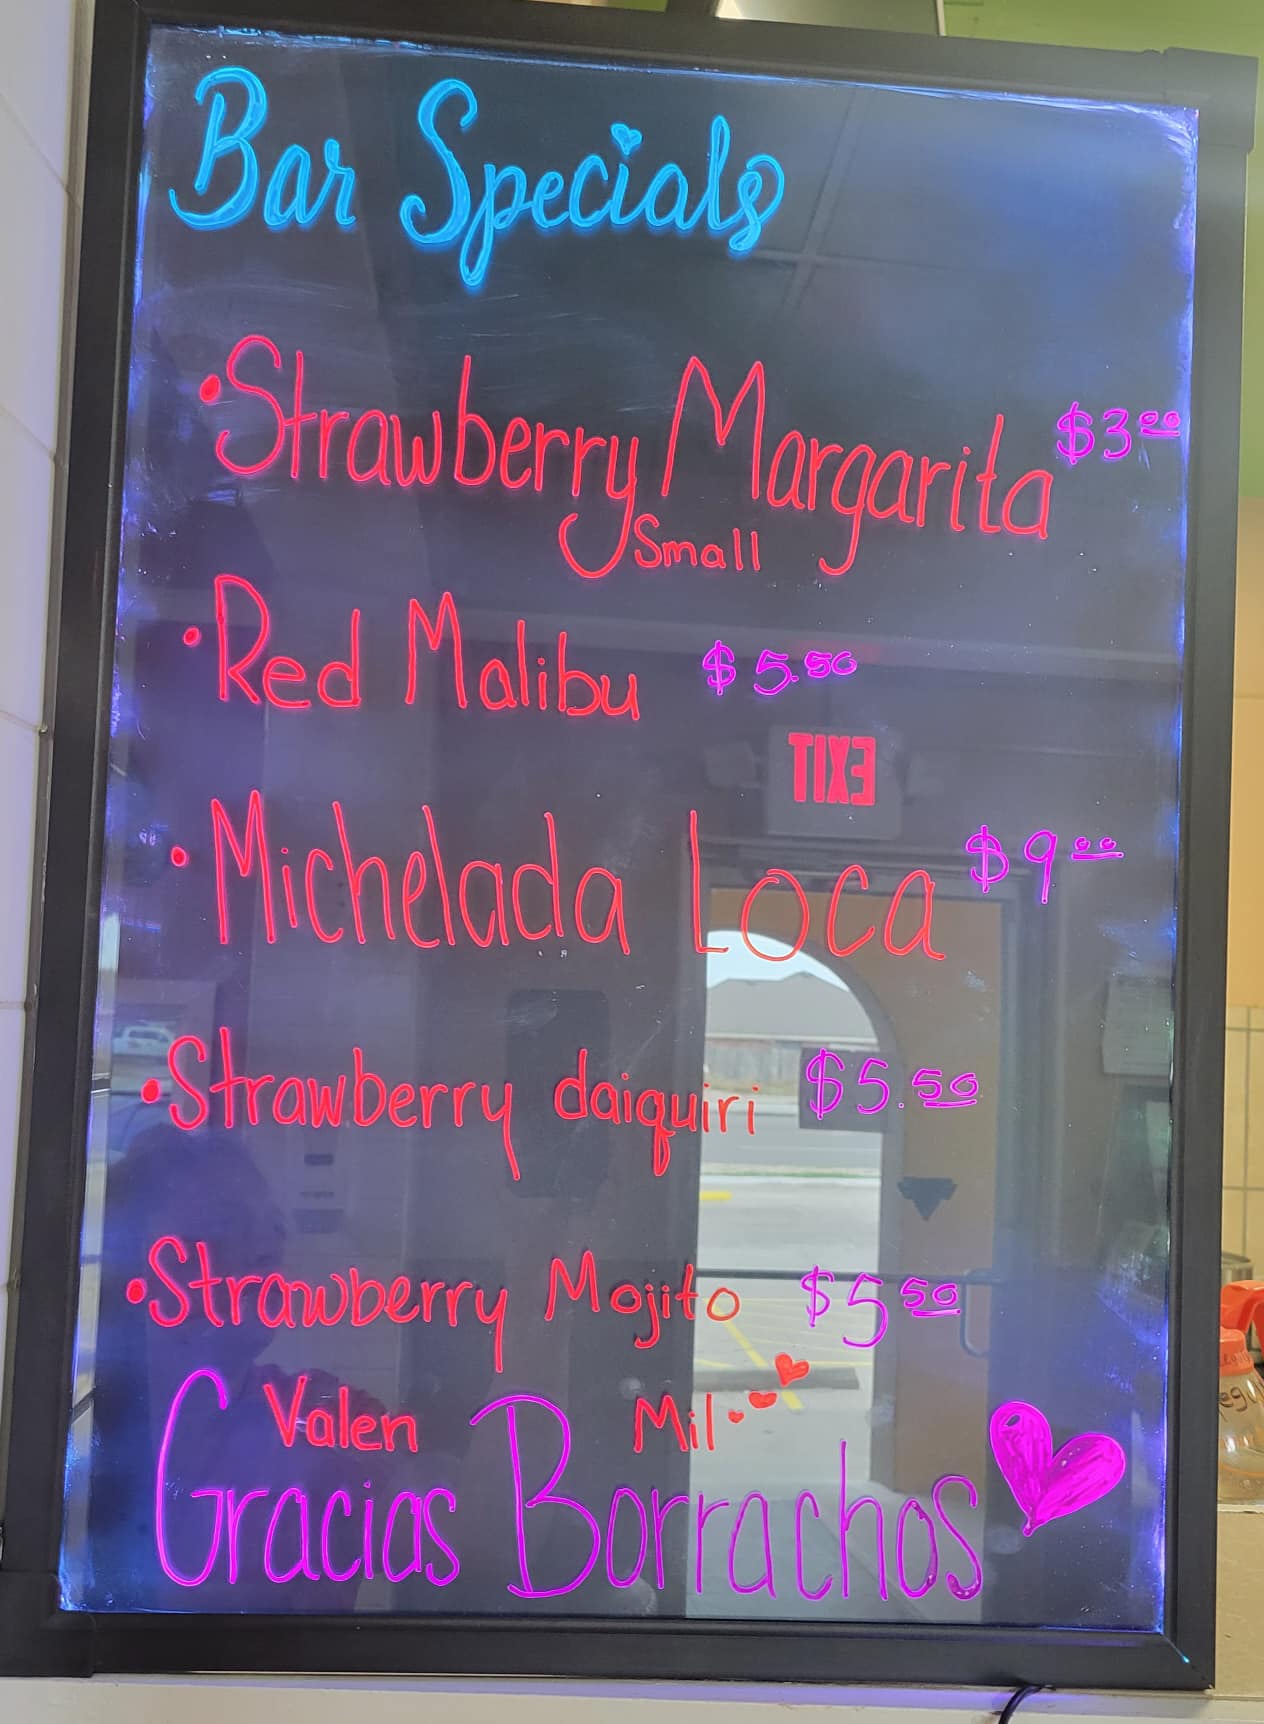 Bar Specials
• Strawberry Margarita $3.00
Small
• Red Malibu $5.50
EXIT
• Michelada Loca $9.00
• Strawberry daiquiri $5.50
• Strawberry Mojito $5 50
Valen Mil
Gracias Borrachos